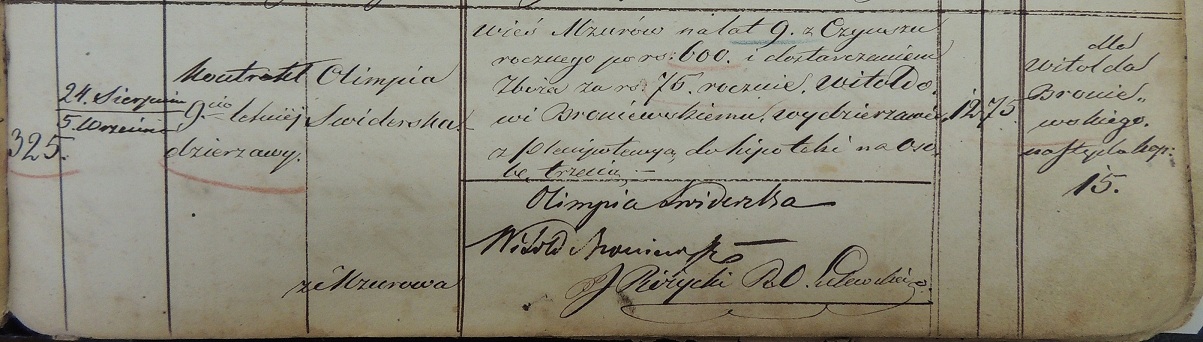 325.
24. Sierpnia
5. Wrzesnia
Kontrakt
9cio letniej
dzierzawy.
Olimpia
Swiderska.
ze Mzurowa
wieś Mzurów na lat 9. z Czynszu
rocznego po rs: 600. i dostarczeniem
Zboża za rs: 75. rocznie, Witoldo,,
wi Broniewskiemu, wydzierzawia,
z plenipotencyą do hipoteki na Oso,,
bę trzecią.—
Olimpia Swiderska
Witold Broniewski
J Różycki
1275
dla
Witolda
Bronie,,
wskiego.
na stęplu kop:
15.